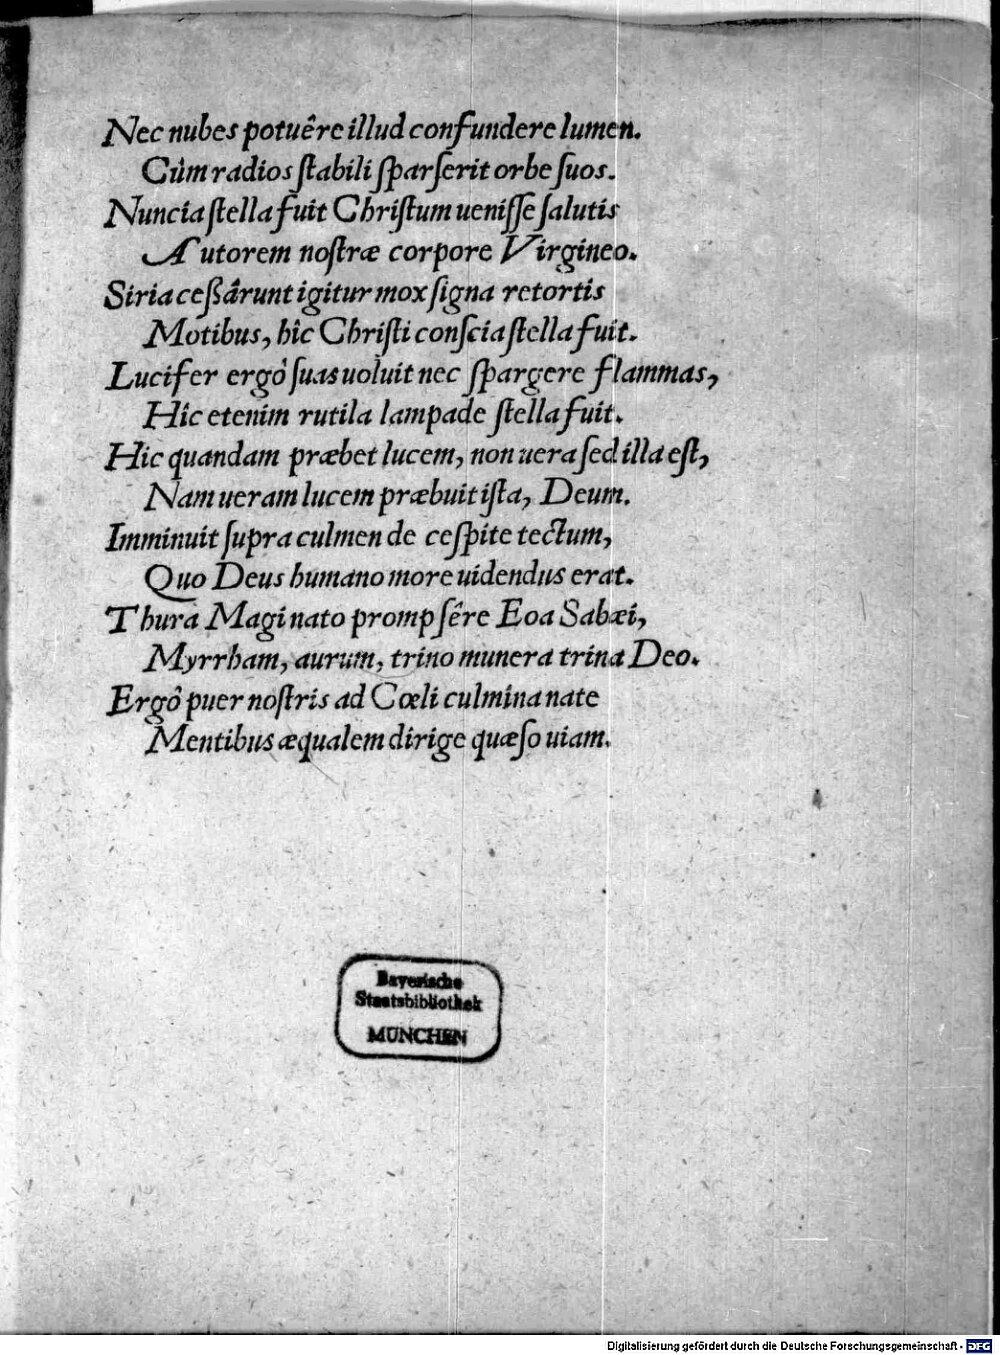 Nec nubes potuêre illud confundere lumen.
Cùm radios ſtabili ſparſerit orbe ſuos.
Nuncia ſtella fuit Chriſtum ueniſſe ſalutis
Autorem noſtræ corpore Virgineo.
Siria ceßârunt igitur mox ſigna retortis
Motibus, hîc Chriſti conſcia ſtella fuit.
Lucifer ergò ſuas uoluit nec ſpargere flammas,
Hîc etenim rutila lampade ſtella fuit.
Hic quandam præbet lucem, non uera ſed illa eſt,
Nam ueram lucem præbuit iſta, Deum.
Imminuit ſupra culmen de ceſpite tectum,
Quo Deus humano more uidendus erat.
Thura Magi nato prompſêre Eoa Sabæi,
Myrrham, aurum, trino munera trina Deo.
Ergò puer noſtris ad Cœli culmina nate
Mentibus æqualem dirige quæſo uiam.
Bayerische
Staatsbibliothek
MÜNCHEN
Digitalisierung gefördert durch die Deutsche Forschungsgemeinschaft - DFG